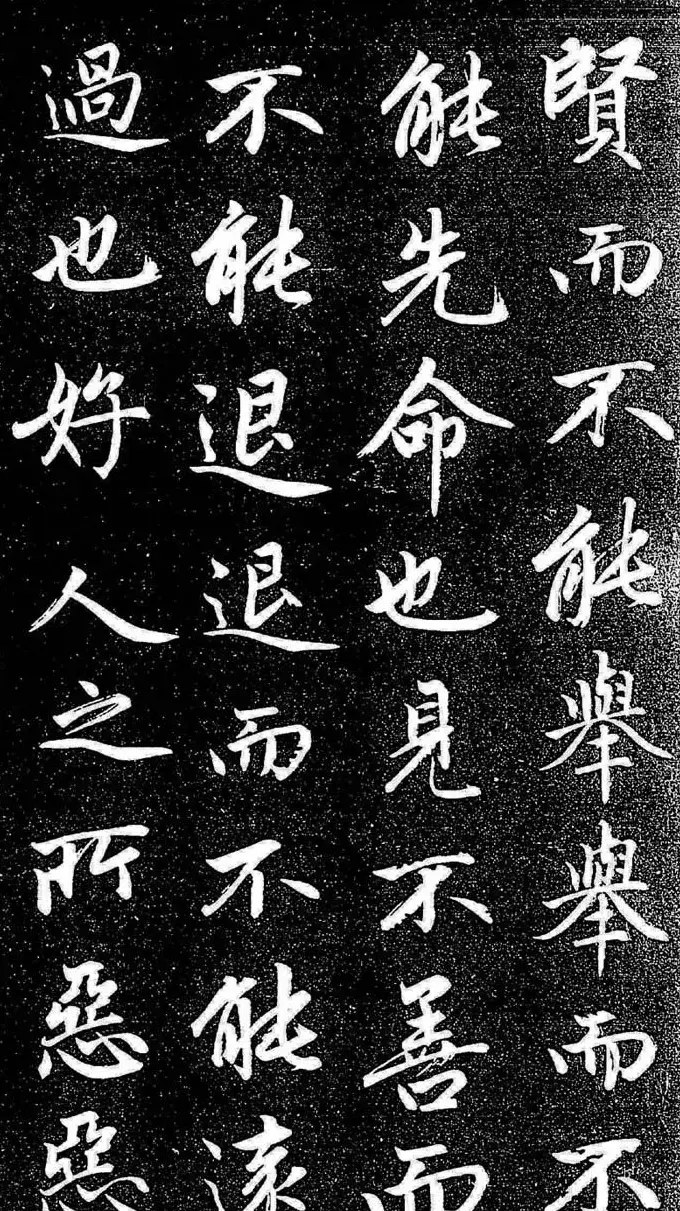 賢而不能舉舉而不
能先命也見不善而
不能退退而不能遠
過也好人之所惡惡